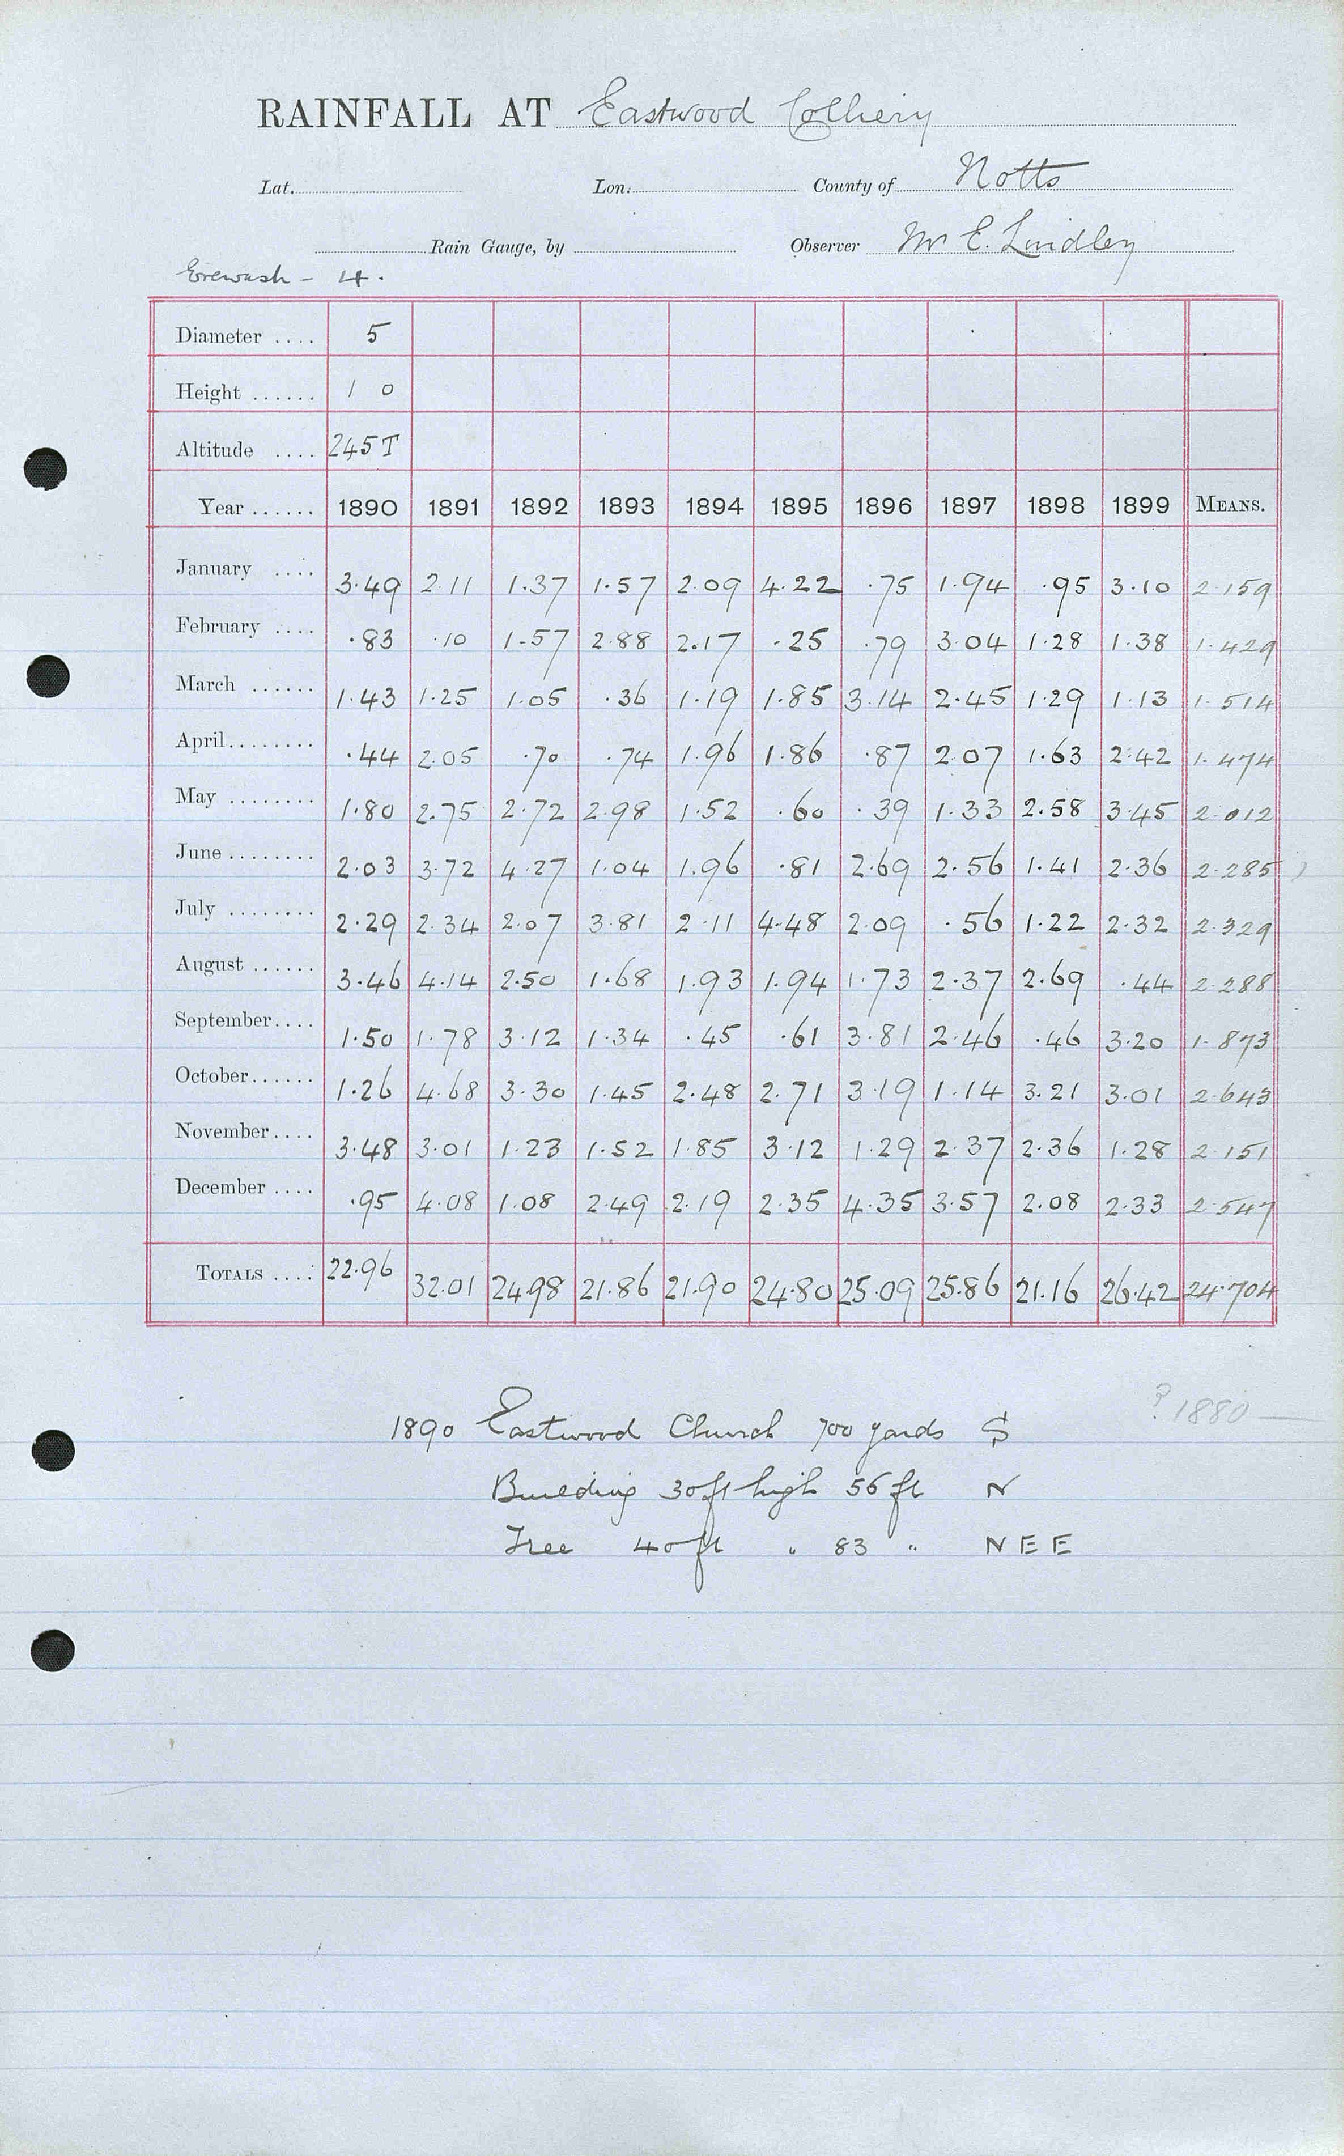 RAINFALL AT Eastwood Colliery
Lat. Lon. County of Notts
Rain Gauge, by Observer Mr E. Lindley
Erewash - 4.
Diameter .... 5
Height ...... 1 0
Altitude .... 245 T
Year ...... 1890 1891 1892 1893 1894 1895 1896 1897 1898 1899 MEANS.
January .... 3.49 2.11 1.37 1.57 2.09 4.22 .75 1.94 .95 3.10 2.159
February .... .83 .10 1.57 2.88 2.17 .25 .79 3.04 1.28 1.38 1.429
March ...... 1.43 1.25 1.05 .36 1.19 1.85 3.14 2.45 1.29 1.13 1.514
April........ .44 2.05 .70 .74 1.96 1.86 .87 2.07 1.63 2.42 1.474
May ........ 1.80 2.75 2.72 2.98 1.52 .60 .39 1.33 2.58 3.45 2.012
June ........ 2.03 3.72 4.27 1.04 1.96 .81 2.69 2.56 1.41 2.36 2.285
July ........ 2.29 2.34 2.07 3.81 2.11 4.48 2.09 .56 1.22 2.32 2.329
August ...... 3.46 4.14 2.50 1.68 1.93 1.94 1.73 2.37 2.69 .44 2.288
September.... 1.50 1.78 3.12 1.34 .45 .61 3.81 2.46 .46 3.20 1.873
October...... 1.26 4.68 3.30 1.45 2.48 2.71 3.19 1.14 3.21 3.01 2.643
November.... 3.48 3.01 1.23 1.52 1.85 3.12 1.29 2.37 2.36 1.28 2.151
December .... .95 4.08 1.08 2.49 2.19 2.35 4.35 3.57 2.08 2.33 2.547
TOTALS .... 22.96 32.01 24.98 21.86 21.90 24.80 25.09 25.86 21.16 26.42 24.704
? 1880 —
1890 Eastwood Church 700 yards S
Building 30 ft high 56 ft N
Tree 40 ft " 83 " N E E